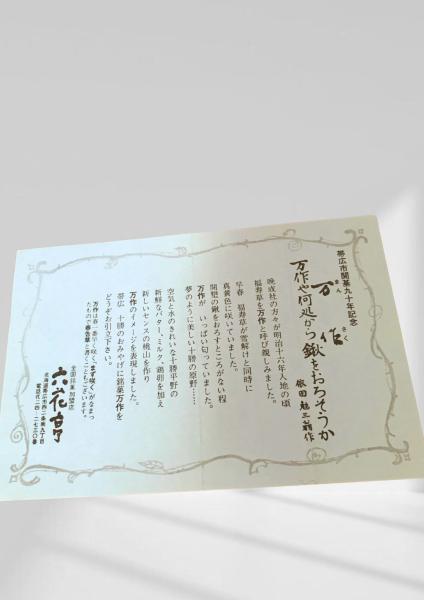 帯広市開基九十年記念
万作
まん さく
万作や何処から鍬をおろそうか
依田勉三翁作
晩成社の方々が明治十六年入地の頃
福寿草を万作と呼び親しみました。
早春 福寿草が雪解けと同時に
真黄色に咲いていました。
開墾の鍬をおろすところがない程
万作が いっぱい匂っていました。
夢のように美しい十勝の原野……
空気と水のきれいな十勝平野の
新鮮なバター、ミルク、鶏卵を加え
新しいセンスの桃山を作り
万作のイメージを表現しました。
帯広 十勝のおみやげに銘菓万作を
どうぞお引立下さい。
万作は春一番早く咲く、まず咲くがなまっ
たもので春告草と書くこともございます。
全国銘菓加盟店
六花亭
北海道帯広市西二条南九丁目
電話代二四-二七三〇番